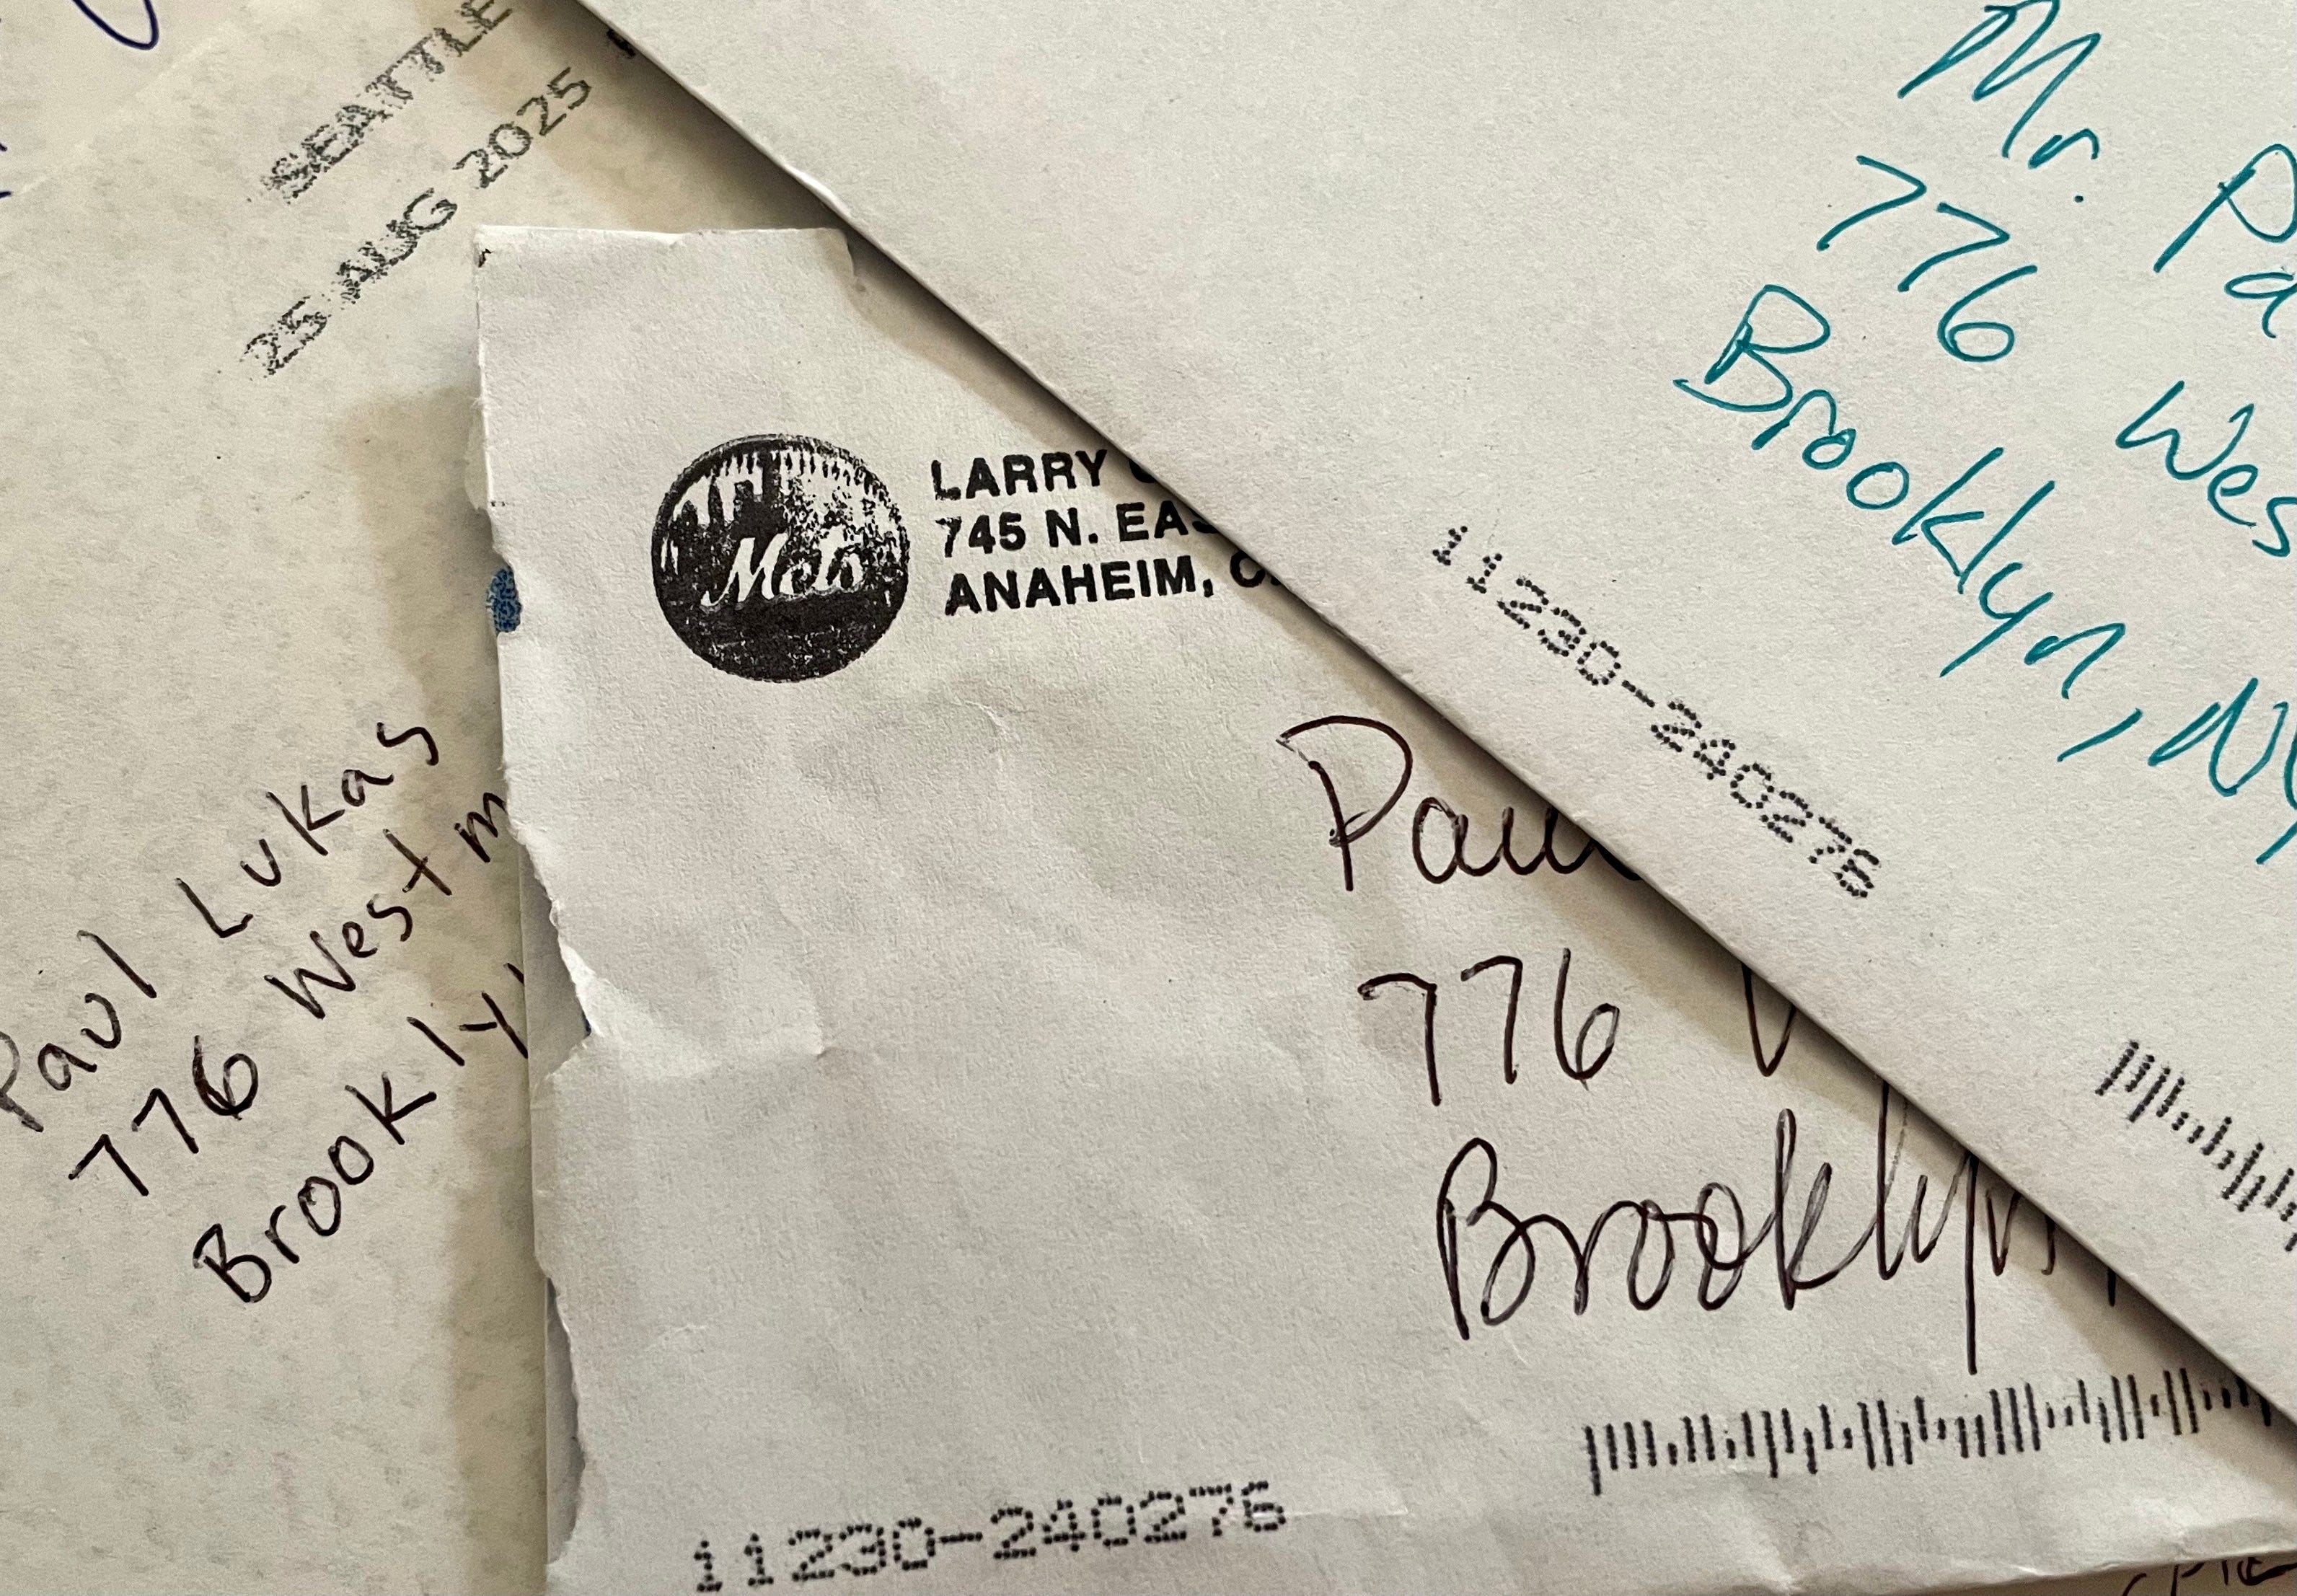 SEATTLE
25 AUG 2025
Paul Lukas
776 Westm
Brookly
Mets
LARRY
745 N. EAS
ANAHEIM, C
Paul
776 W
Brooklyn,
11230-240276
Mr. Pa
776 Wes
Brooklyn, NY
11230-240276